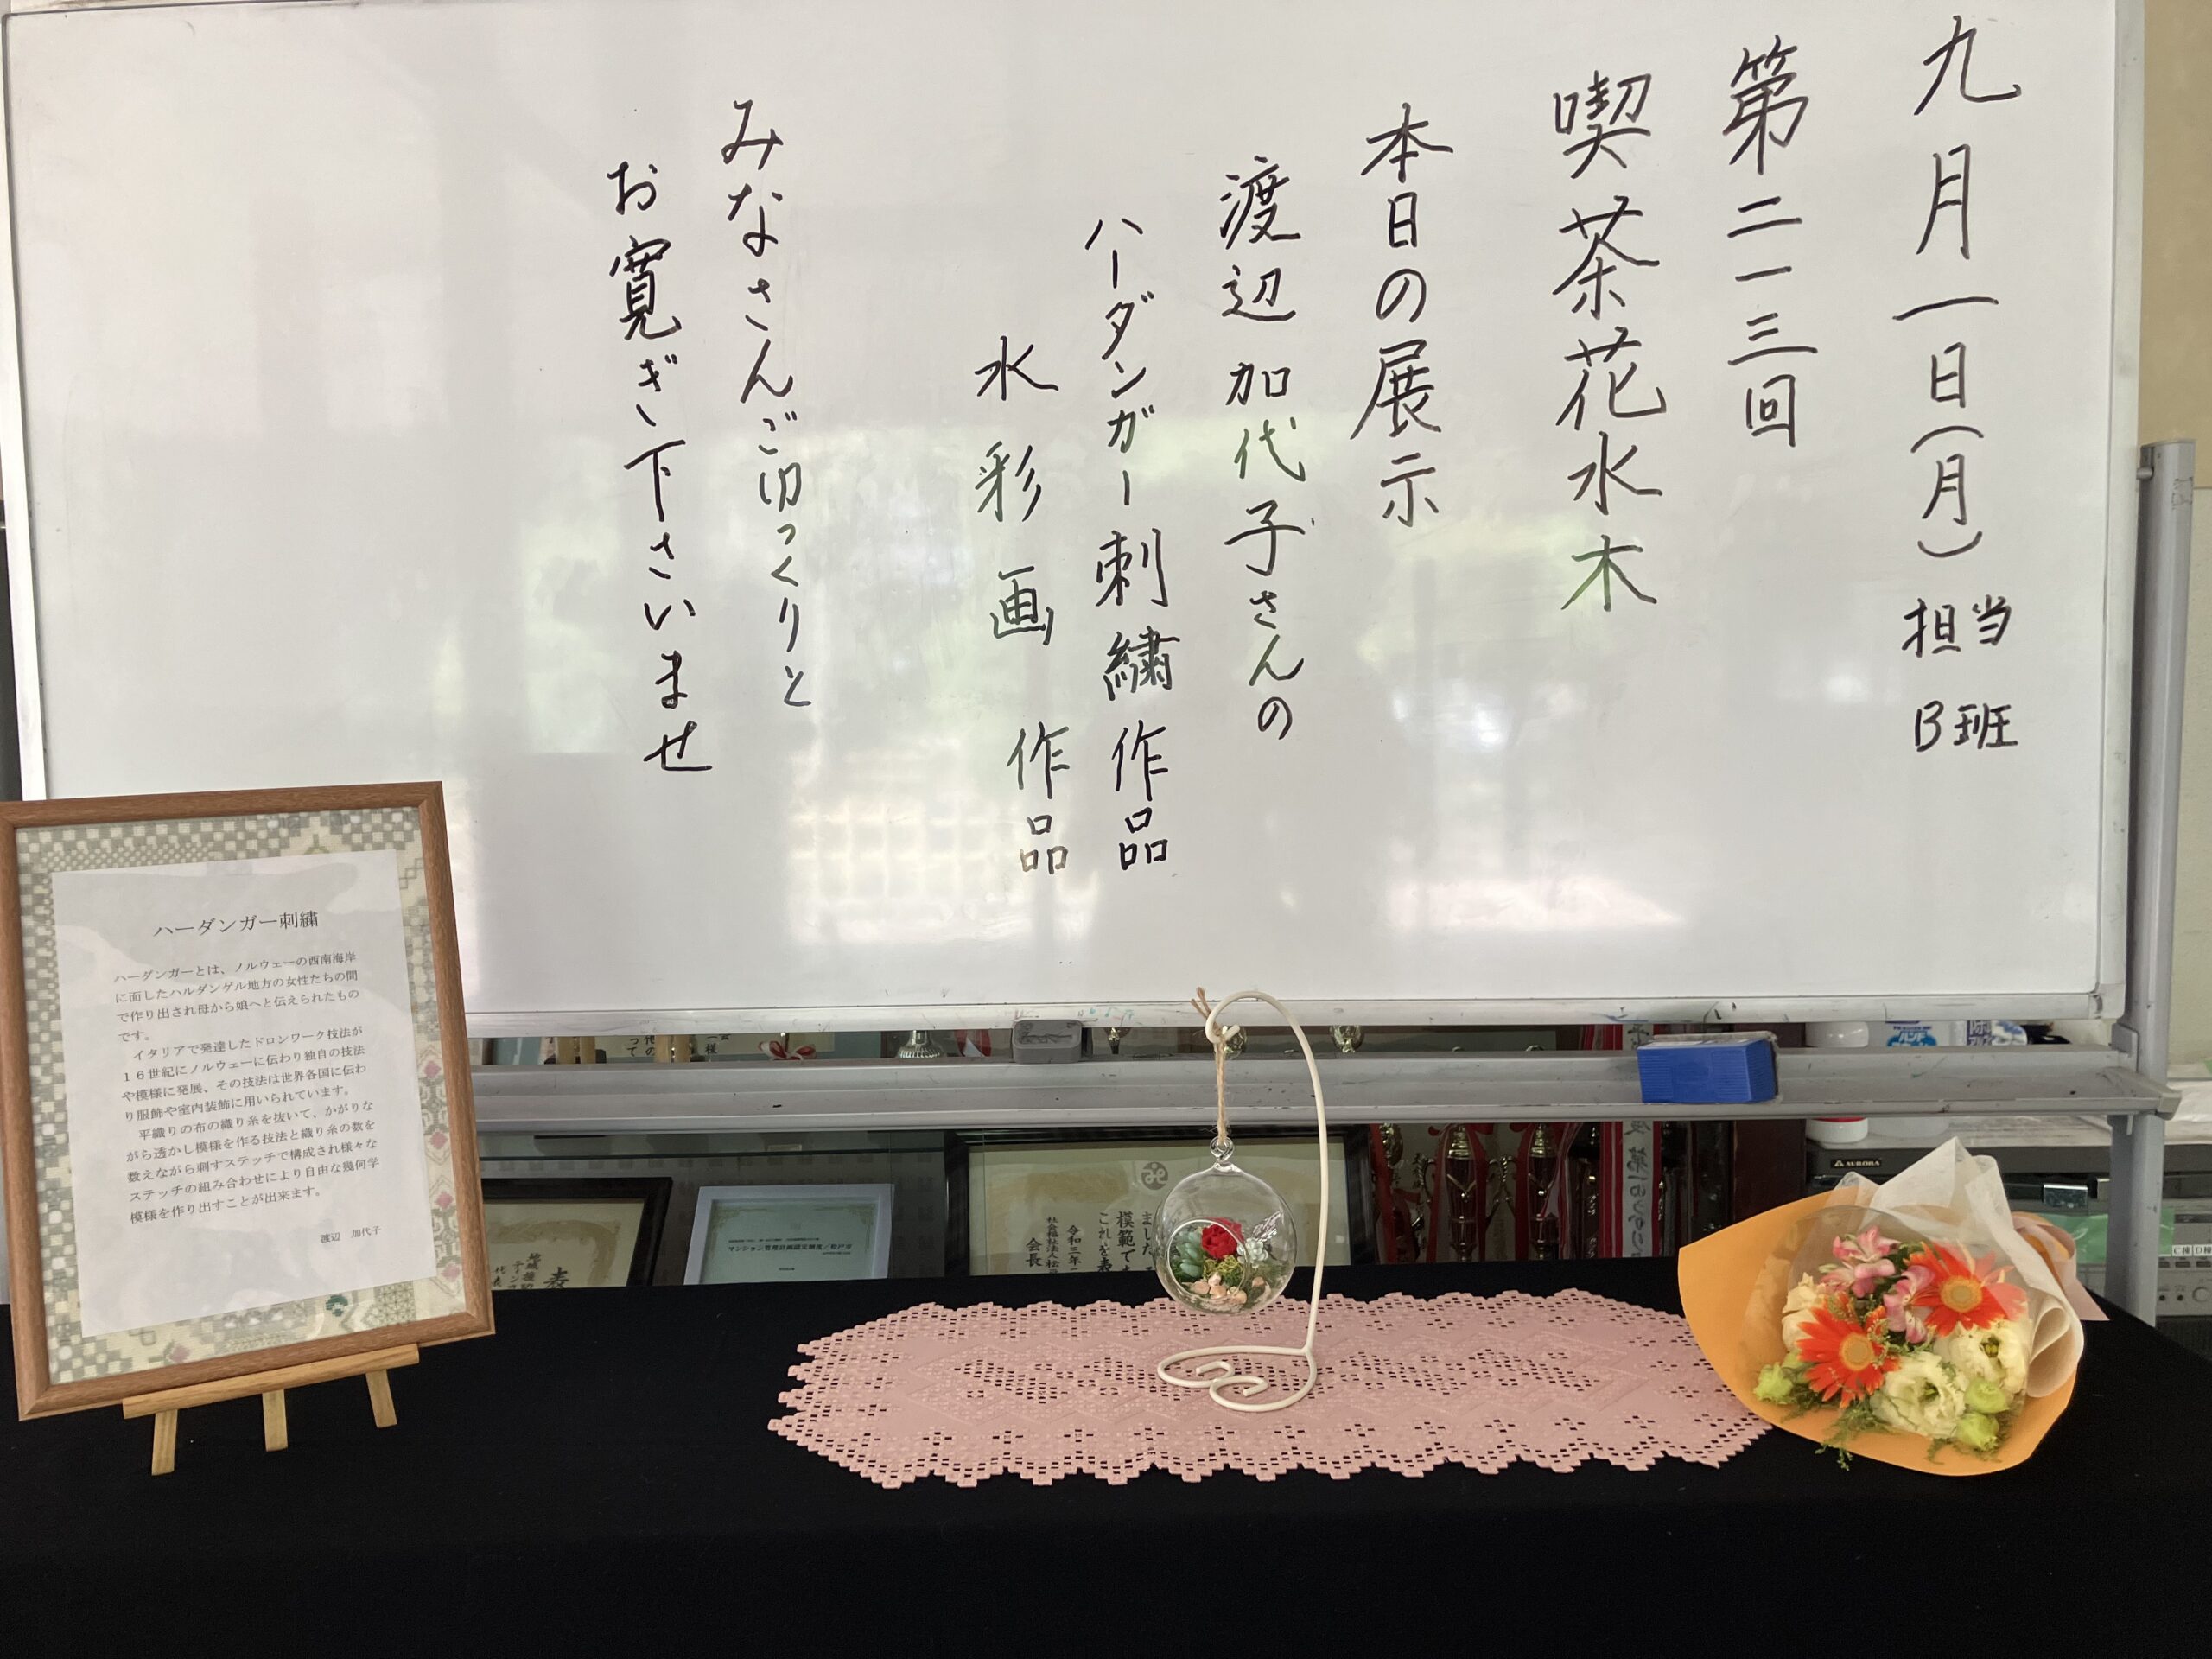 九月一日(月)担当 B班
第二一三回
喫茶花水木
本日の展示
渡辺加代子さんの
ハーダンガー刺繍作品
水彩画 作品
みなさんごゆっくりと
お寛ぎ下さいませ
ハーダンガー刺繍
ハーダンガーとは、ノルウェーの西南海岸
に面したハルダンゲル地方の女性たちの間
で作り出され母から娘へと伝えられたもの
です。
イタリアで発達したドロンワーク技法が
16世紀にノルウェーに伝わり独自の技法
や模様に発展、その技法は世界各国に伝わ
り服飾や室内装飾に用いられています。
平織りの布の織り糸を抜いて、かがりな
がら透かし模様を作る技法と織り糸の数を
数えながら刺すステッチで構成され様々な
ステッチの組み合わせにより自由な幾何学
模様を作り出すことが出来ます。
渡辺 加代子
マンション管理計画認定制度/松戸市
令和三年
会長
AURORA
C棟 D棟